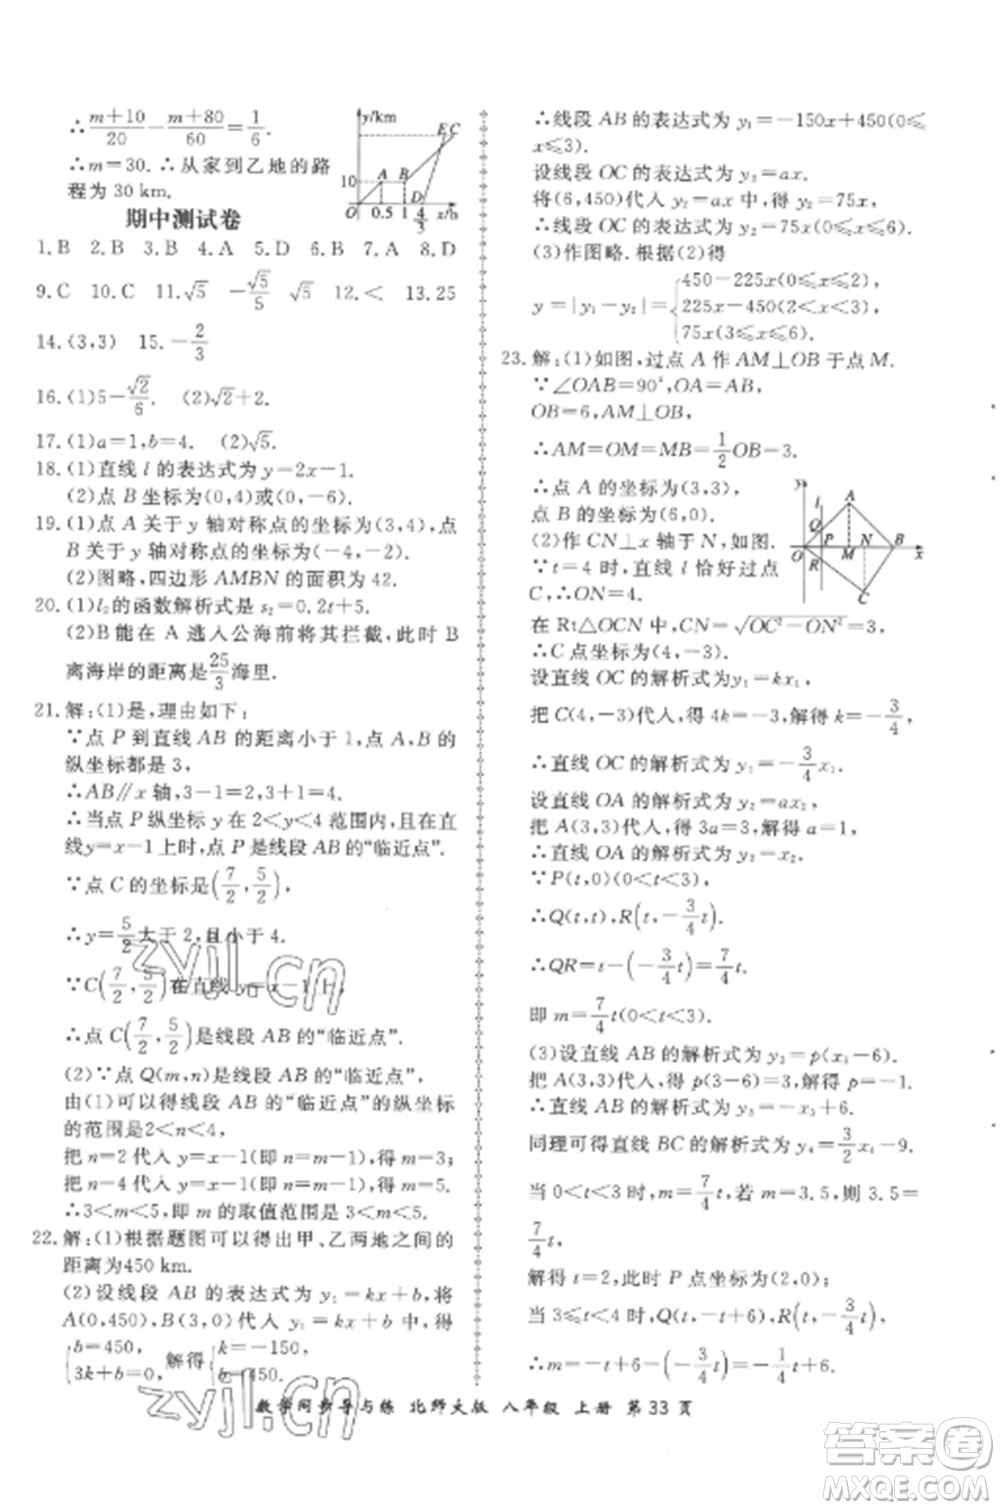 ∴(m+10)/20-(m+80)/60=1/6.
∴m=30. ∴从家到乙地的路
程为 30 km.
y/km
E C
10
A B
D
O 0.5 1 4/3 x/h
期中测试卷
1. B 2. B 3. B 4. A 5. D 6. B 7. A 8. D
9. C 10. C 11. √5 -√5/5 √5 12. < 13. 25
14. (3,3) 15. -2/3
16. (1)5-√2/6. (2)√2+2.
17. (1)a=1,b=4. (2)√5.
18. (1)直线 l 的表达式为 y=2x-1.
(2)点 B 坐标为(0,4)或(0,-6).
19. (1)点 A 关于 y 轴对称点的坐标为(3,4),点
B 关于 y 轴对称点的坐标为(-4,-2).
(2)图略,四边形 AMBN 的面积为 42.
20. (1)l₂的函数解析式是 s₂=0.2t+5.
(2)B 能在 A 逃入公海前将其拦截,此时 B
离海岸的距离是25/3海里.
21. 解:(1)是,理由如下:
∵点 P 到直线 AB 的距离小于 1,点 A、B 的
纵坐标都是 3,
∴AB∥x 轴,3-1=2,3+1=4.
∴当点 P 纵坐标 y 在 2<y<4 范围内,且在直
线 y=x-1 上时,点 P 是线段 AB 的“临近点”.
∵点 C 的坐标是(7/2,5/2),
∴y=5/2大于 2,且小于 4.
∵C(7/2,5/2)在直线 y=x-1 上,
∴点 C(7/2,5/2)是线段 AB 的“临近点”.
(2)∵点 Q(m,n)是线段 AB 的“临近点”,
由(1)可以得线段 AB 的“临近点”的纵坐标
的范围是2<n<4,
把 n=2 代入 y=x-1(即 n=m-1),得 m=3;
把 n=4 代入 y=x-1(即 n=m-1),得 m=5.
∴3<m<5,即 m 的取值范围是 3<m<5.
22. 解:(1)根据题图可以得出甲、乙两地之间的
距离为450 km.
(2)设线段 AB 的表达式为 y₁=kx+b,将
A(0,450),B(3,0)代入 y₁=kx+b 中,得
{b=450, 3k+b=0, 解得{k=-150, b=450.
∴线段 AB 的表达式为 y₁=-150x+450(0≤
x≤3).
设线段 OC 的表达式为 y₂=ax.
将(6,450)代入 y₂=ax 中,得 y₂=75x.
∴线段 OC 的表达式为 y₂=75x(0≤x≤6).
(3)作图略. 根据(2)得
y=|y₁-y₂|={450-225x(0≤x≤2),
225x-450(2<x<3),
75x(3≤x≤6).
23. 解:(1)如图,过点 A 作 AM⊥OB 于点 M.
∵∠OAB=90°,OA=AB,
OB=6,AM⊥OB,
∴AM=OM=MB=1/2OB=3.
∴点 A 的坐标为(3,3),
点 B 的坐标为(6,0).
y l A Q O P M N B x R C
(2)作 CN⊥x 轴于 N,如图.
∵t=4 时,直线 l 恰好过点
C,∴ON=4.
在 Rt△OCN 中,CN=√(OC²-ON²)=3,
∴C 点坐标为(4,-3).
设直线 OC 的解析式为y₁=kx₁,
把 C(4,-3)代入,得 4k=-3,解得 k=-3/4,
∴直线 OC 的解析式为 y₁=-3/4x₁.
设直线 OA 的解析式为 y₂=ax₂,
把 A(3,3)代入,得 3a=3,解得 a=1,
∴直线 OA 的解析式为 y₂=x₂.
∵P(t,0)(0<t<3),
∴Q(t,t),R(t,-3/4t).
∴QR=t-(-3/4t)=7/4t,
即 m=7/4t(0<t<3).
(3)设直线 AB 的解析式为 y₃=p(x₃-6).
把 A(3,3)代入,得 p(3-6)=3,解得 p=-1,
∴直线 AB 的解析式为 y₃=-x₃+6.
同理可得直线 BC 的解析式为 y₄=3/2x₄-9.
当 0<t<3 时,m=7/4t,若 m=3.5,则 3.5=
7/4t,
解得 t=2,此时 P 点坐标为(2,0);
当 3≤t<4 时,Q(t,-t+6),R(t,-3/4t),
∴m=-t+6-(-3/4t)=-1/4t+6.
数学同步导与练 北师大版 八年级 上册 第 33 页
zyjl.cn
zyjl.cn
答案圈
MXQE.COM